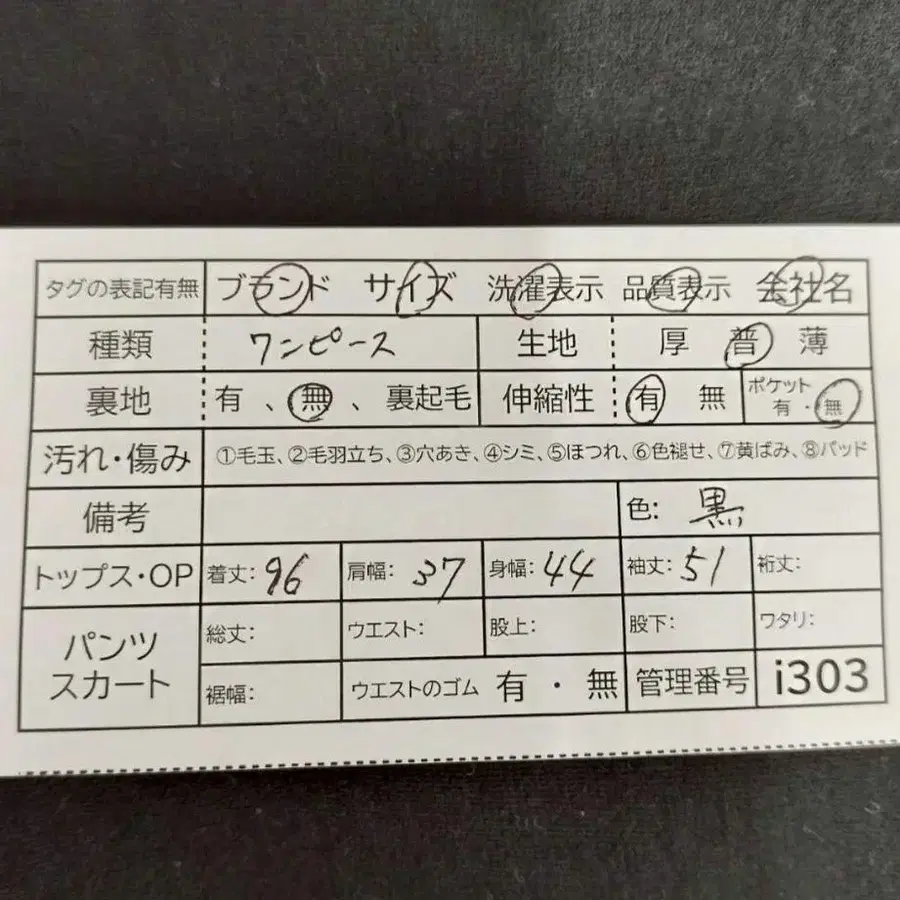 タグの表記有無 ブランド サイズ 洗濯表示 品質表示 会社名
種類 ワンピース 生地 厚 普 薄
裏地 有 、 無 、 裏起毛 伸縮性 有 無 ポケット 有・無
汚れ・傷み ①毛玉、②毛羽立ち、③穴あき、④シミ、⑤ほつれ、⑥色褪せ、⑦黄ばみ、⑧パッド
備考 色: 黒
トップス・OP 着丈: 96 肩幅: 37 身幅: 44 袖丈: 51 裄丈:
パンツ スカート
総丈: ウエスト: 股上: 股下: ワタリ:
裾幅: ウエストのゴム 有 ・ 無 管理番号 i303